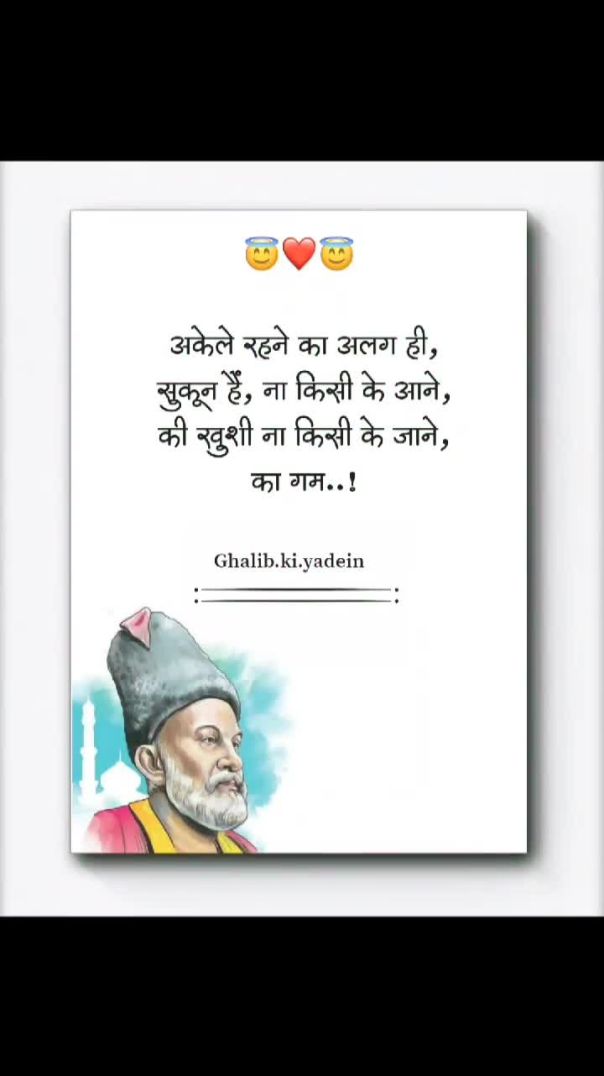 😇❤️😇
अकेले रहने का अलग ही,
सुकून हैं, ना किसी के आने,
की खुशी ना किसी के जाने,
का गम..!
Ghalib.ki.yadein